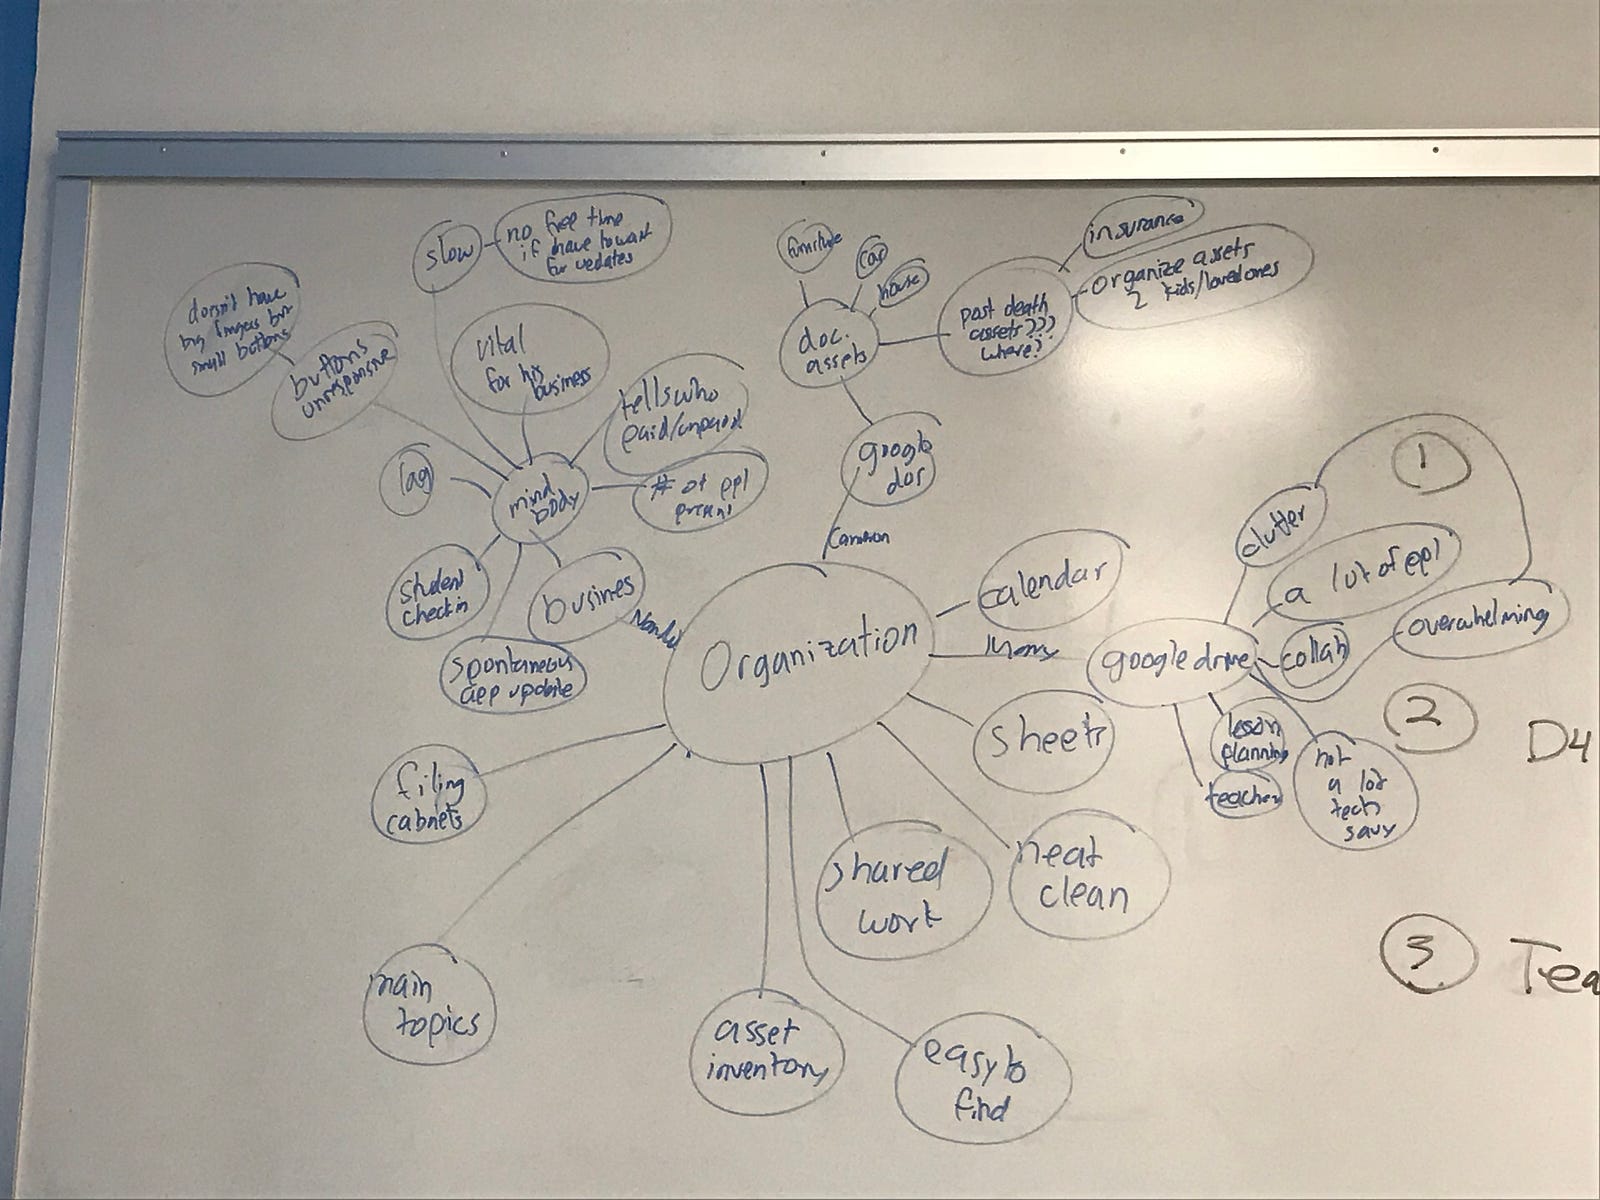 slow
no free time
if have to wait
for updates
doesn't have
big fingers but
small buttons
buttons
unresponsive
vital
for his
business
tells who
paid/unpaid
# of ppl
present
lag
mind
body
student
checkin
busines
spontaneous
app update
furniture
car
house
doc.
assets
post death
assets???
where?
insurance
organize assets
2 kids/loved ones
google
doc
Cameron
Organization
calendar
sheets
google drive
clutter
a lot of ppl
collab
overwhelming
lesson
planning
teacher
not
a lot
tech
savy
filing
cabnets
main
topics
asset
inventory
easy to
find
shared
work
neat
clean
1
2
D4
3
Tea